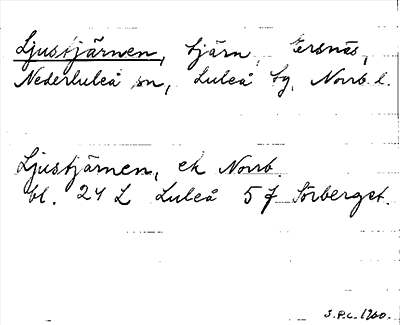 Ljustjärnen, tjärn, Ersnäs,
Nederluleå sn, Luleå tg, Norrb. l.
Ljustjärnen, ek Norrb.
bl. 24 L Luleå 5 f Sörberget.
S.P.C. 1960.